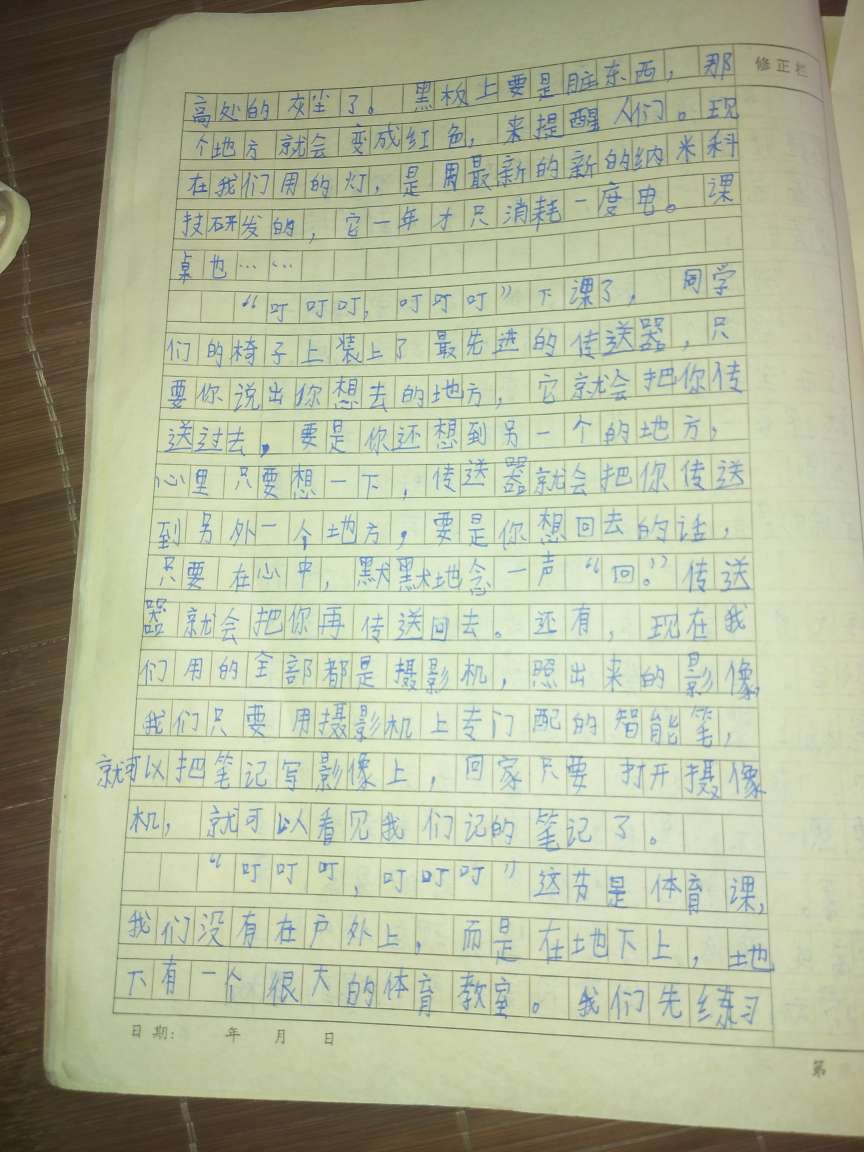 修正栏
高处的灰尘了。黑板上要是脏东西，那
个地方就会变成红色，来提醒人们。现
在我们用的灯，是用最新的新的纳米科
技研发的，它一年才只消耗一度电。课
桌也……
“叮叮叮，叮叮叮”下课了，同学
们的椅子上装上了最先进的传送器，只
要你说出你想去的地方，它就会把你传
送过去，要是你还想到另一个的地方，
心里只要想一下，传送器就会把你传送
到另外一个地方，要是你想回去的话，
只要在心中，默默地念一声“回。”传送
器就会把你再传送回去。还有，现在我
们用的全部都是摄影机，照出来的影像，
我们只要用摄影机上专门配的智能笔，
就可以把笔记写影像上，回家只要打开摄像
机，就可以看见我们记的笔记了。
“叮叮叮，叮叮叮”这节是体育课，
我们没有在户外上，而是在土地下上，土地
下有一个很大的体育教室。我们先练习
日期： 年 月 日
第